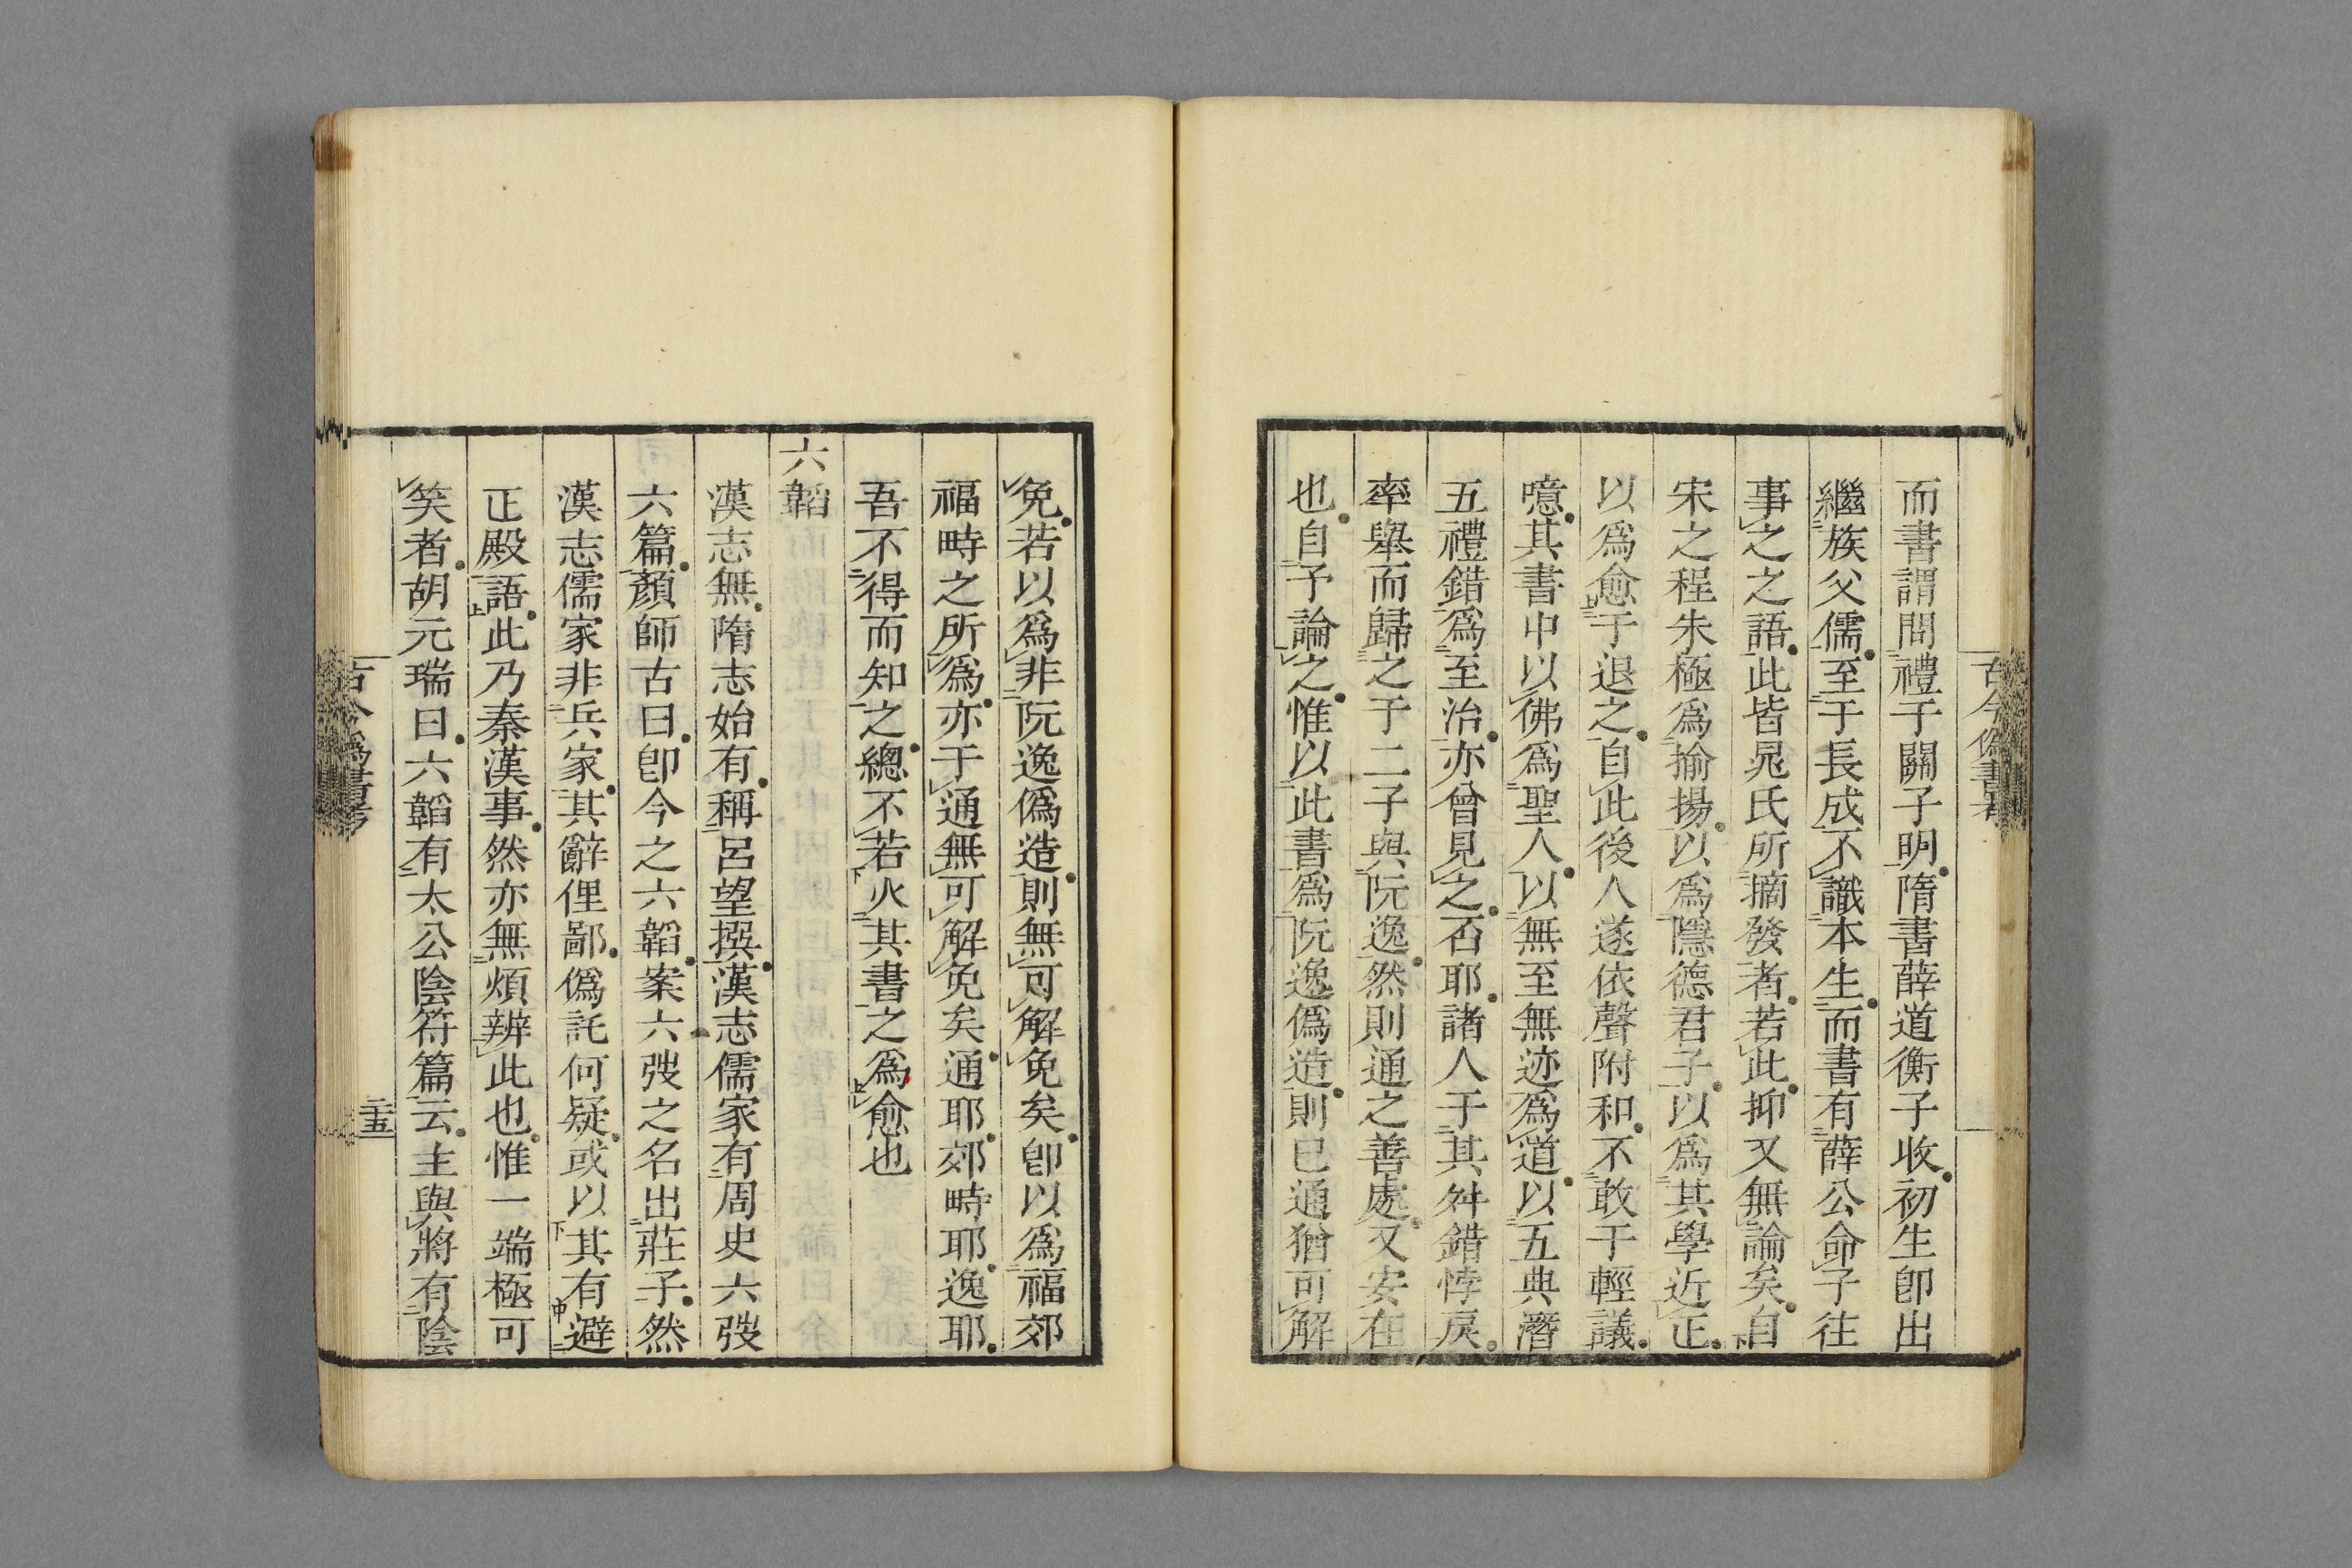 古今僞書考
而書謂問禮于關子明隋書薛道衡子收初生卽出
繼族父儒至于長成不識本生而書有薛公命子往
事之之語此皆晁氏所摘發者若此抑又無論矣自
宋之程朱極爲揄揚以爲隱德君子以爲其學近正
以爲愈于退之自此後人遂依聲附和不敢于輕議
噫其書中以佛爲聖人以無至無迹爲道以五典潛
五禮錯爲至治亦曾見之否耶諸人于其舛錯悖戾
率舉而歸之于二子與阮逸然則通之善處又安在
也自予論之惟以此書爲阮逸僞造則已通猶可解
免若以爲非阮逸僞造則無可解免矣卽以爲福郊
福畤之所爲亦于通無可解免矣通耶郊畤耶逸耶
吾不得而知之總不若火其書之爲愈也
六韜
漢志無隋志始有稱呂望撰漢志儒家有周史六弢
六篇顏師古曰卽今之六韜案六弢之名出莊子然
漢志儒家非兵家其辭俚鄙僞託何疑或以其有避
正殿語此乃秦漢事然亦無煩辨此也惟一端極可
笑者胡元瑞曰六韜有太公陰符篇云主與將有陰
古今僞書考
二十五